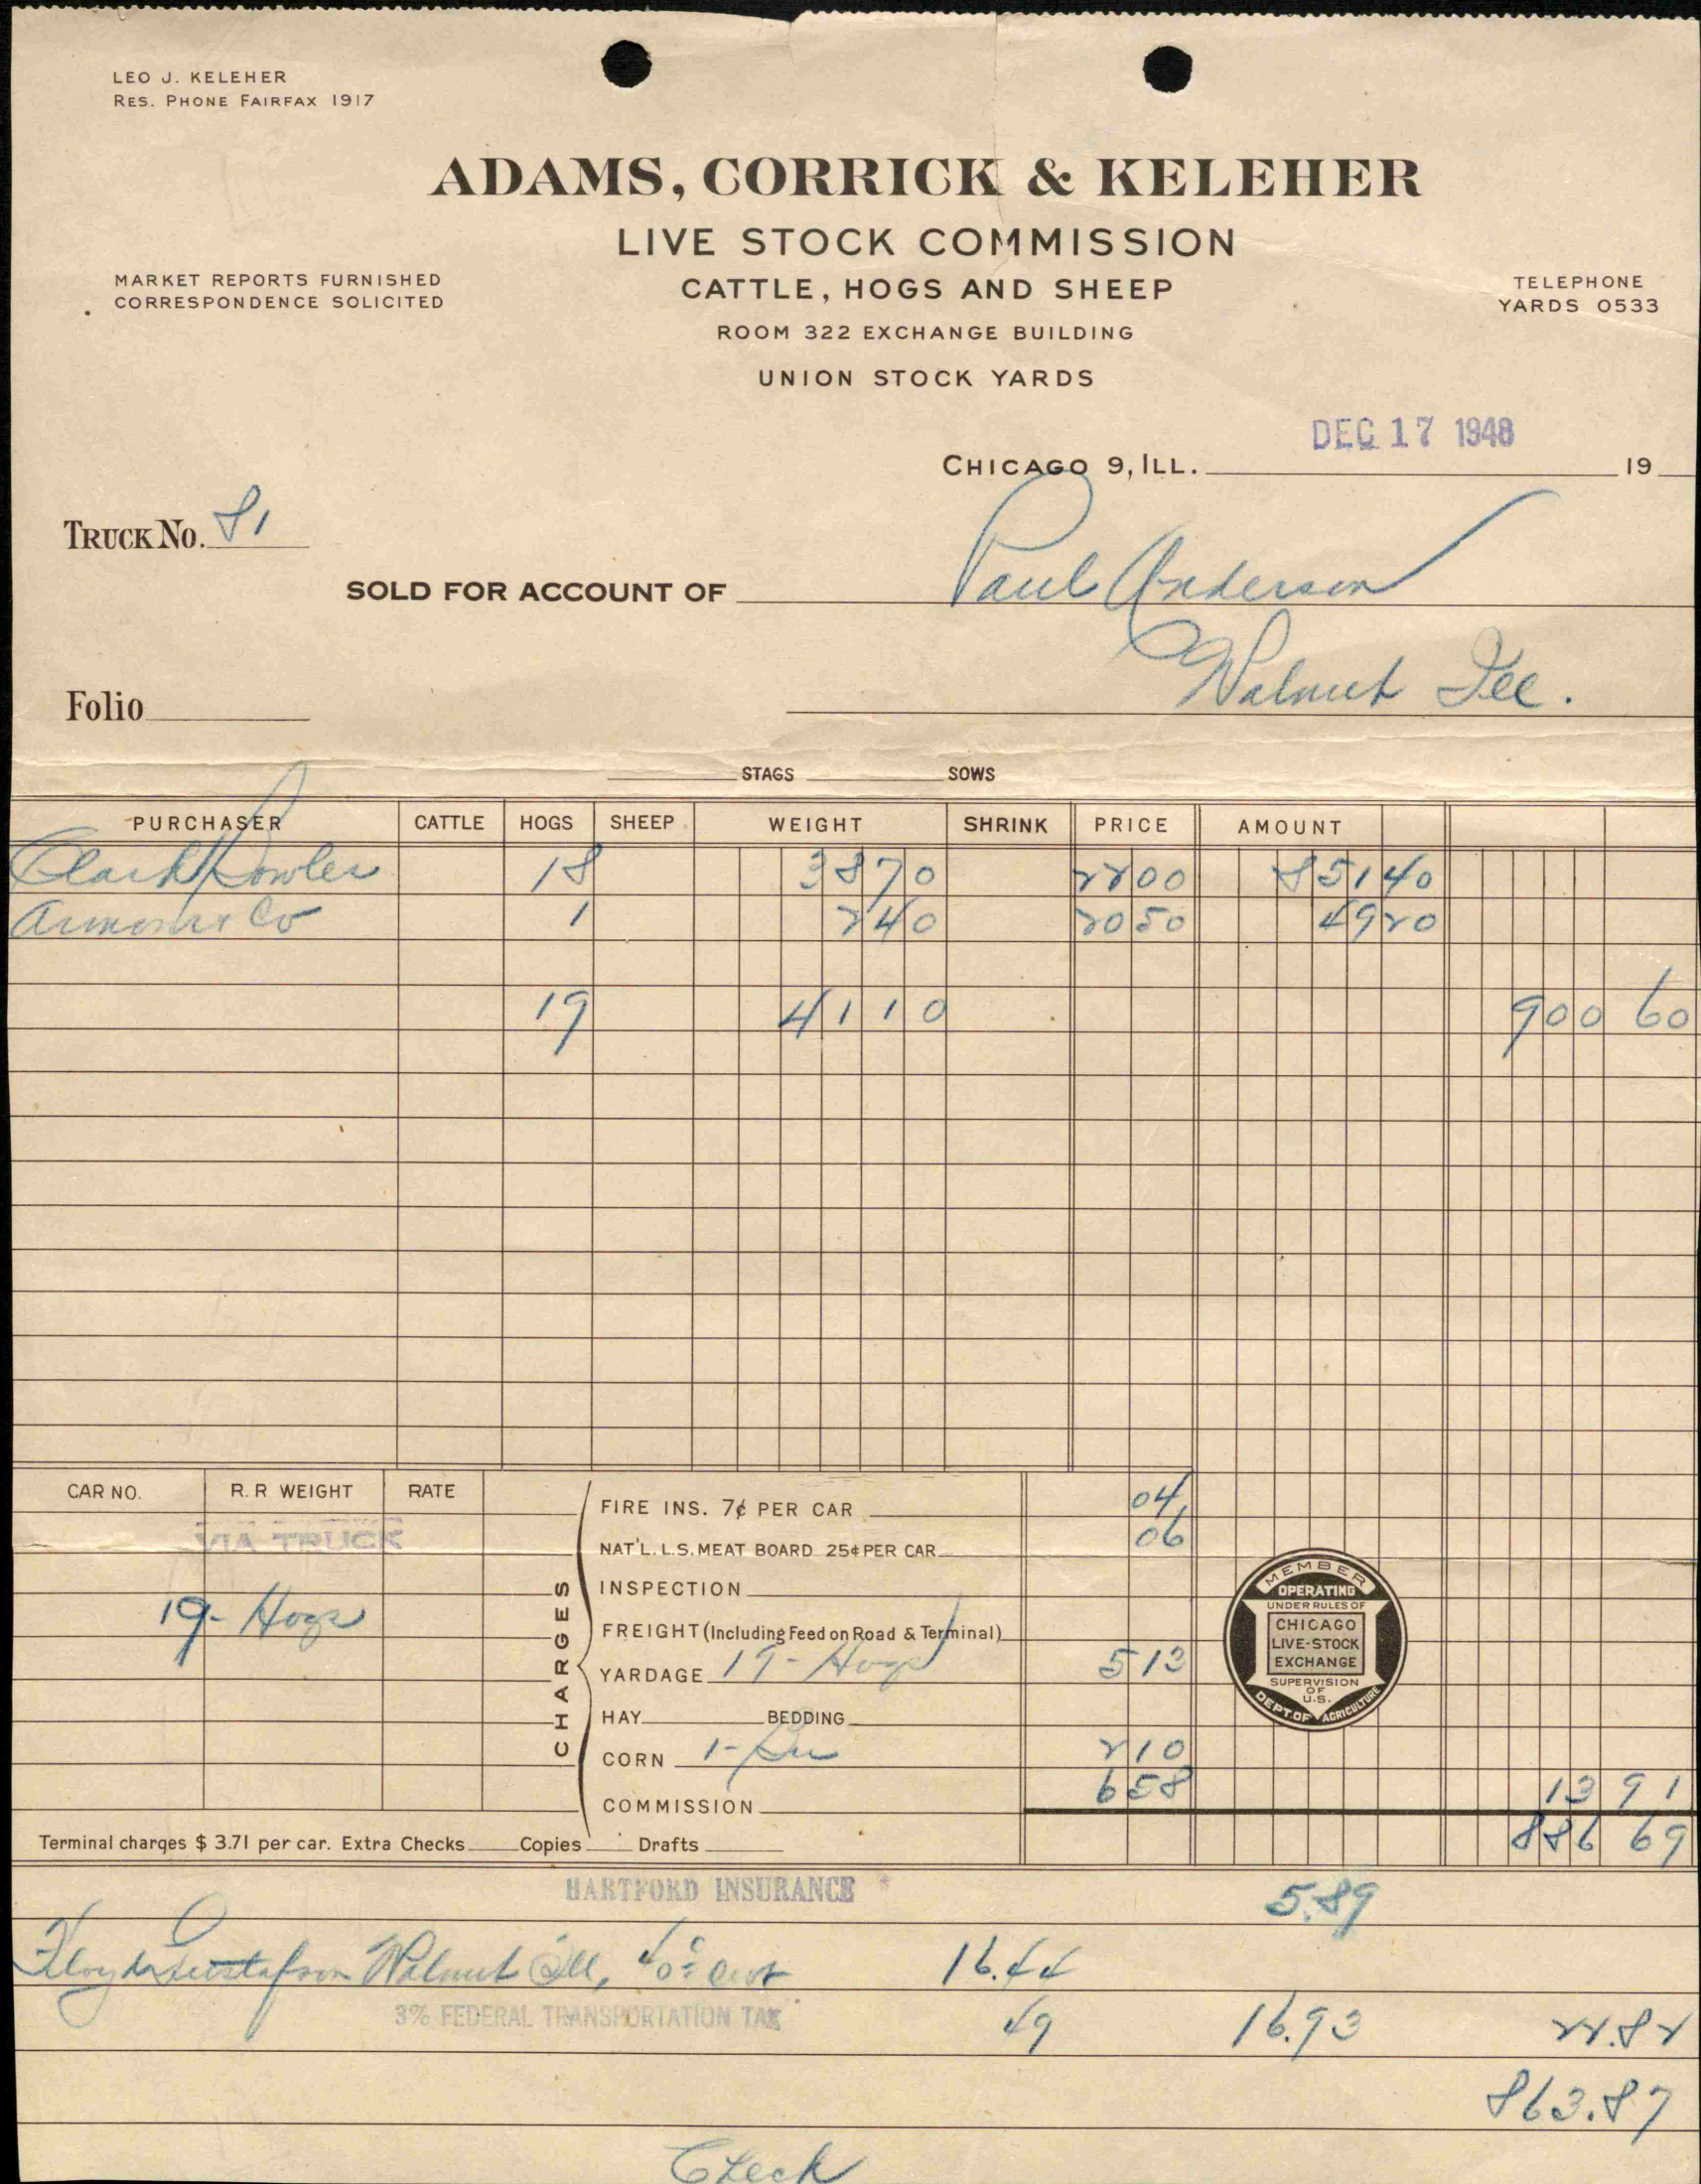 LEO J. KELEHER
RES. PHONE FAIRFAX 1917
ADAMS, CORRICK & KELEHER
LIVE STOCK COMMISSION
CATTLE, HOGS AND SHEEP
MARKET REPORTS FURNISHED
CORRESPONDENCE SOLICITED
TELEPHONE
YARDS 0533
ROOM 322 EXCHANGE BUILDING
UNION STOCK YARDS
DEC 17 1948
CHICAGO 9, ILL. 19
TRUCK NO. 81
SOLD FOR ACCOUNT OF Paul Anderson
Folio Walnut Ill.
STAGS SOWS
PURCHASER CATTLE HOGS SHEEP WEIGHT SHRINK PRICE AMOUNT
Clark Fowler 18 3870 2200 85140
Armour & Co 1 240 2050 4920
19 4110 900 60
CAR NO. R.R WEIGHT RATE
VIA TRUCK
19- Hogs
CHARGES
FIRE INS. 7¢ PER CAR 04
NAT'L. L.S. MEAT BOARD 25¢ PER CAR 06
INSPECTION
FREIGHT (Including Feed on Road & Terminal)
YARDAGE 19- Hogs 513
HAY BEDDING
CORN 1- Bu 210
COMMISSION 658 13 91
Terminal charges $ 3.71 per car. Extra Checks Copies Drafts 886 69
MEMBER
OPERATING
UNDER RULES OF
CHICAGO
LIVE-STOCK
EXCHANGE
SUPERVISION
OF
U.S.
DEPT. OF AGRICULTURE
HARTFORD INSURANCE 5.89
Floyd Gustafson Walnut Ill, 40¢ cwt 16.44
3% FEDERAL TRANSPORTATION TAX 49 16.93 22.82
863.87
Check